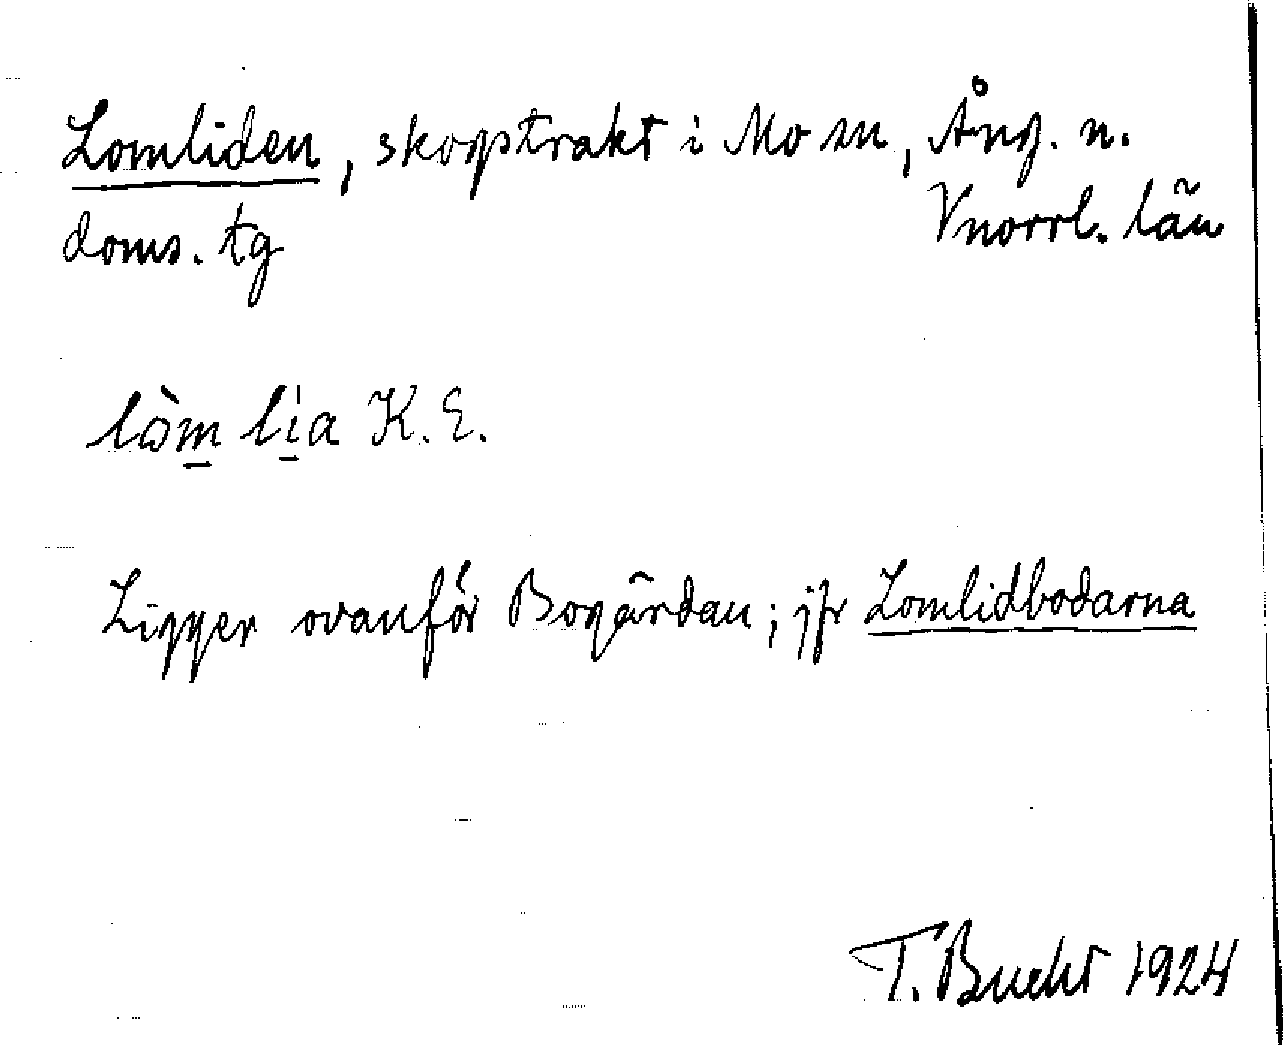 Lomliden, skogstrakt i Mo sn, Ång. n.
doms. tg Vnorrl. län
lòm lia K. E.
Ligger ovanför Bogårdan; jfr Lomlidbodarna
T. Bucht 1924